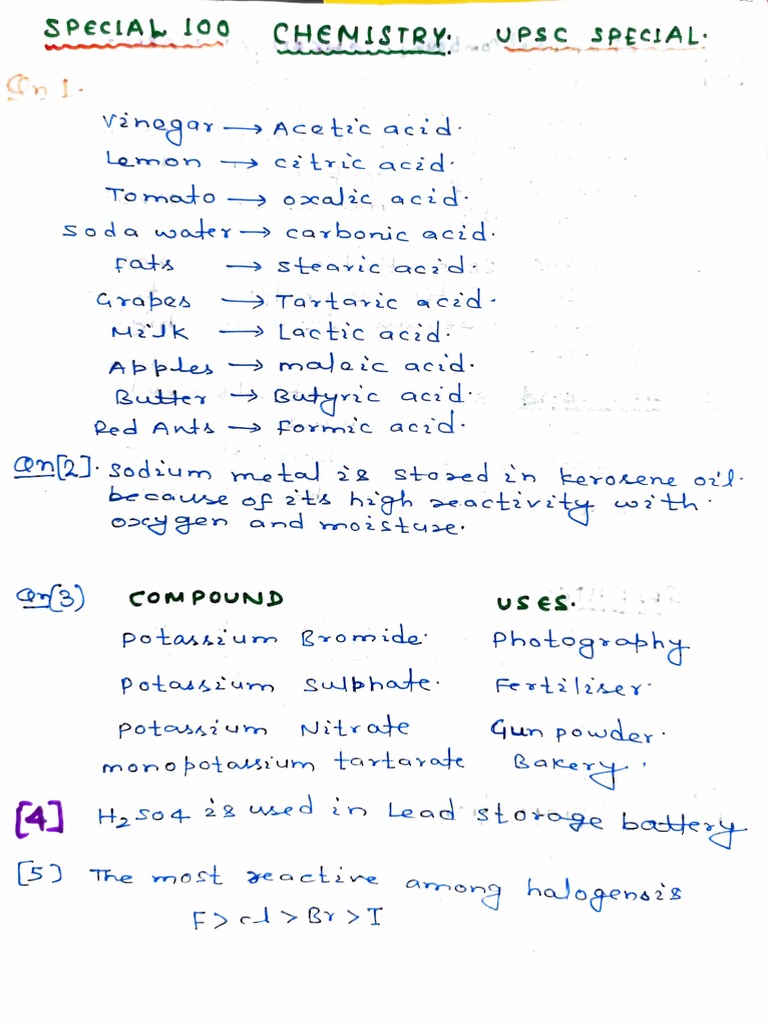 SPECIAL 100 CHEMISTRY. UPSC SPECIAL.
Qn 1.
Vinegar → Acetic acid.
Lemon → citric acid.
Tomato → oxalic acid.
Soda water → carbonic acid.
Fats → stearic acid.
Grapes → Tartaric acid.
Milk → Lactic acid.
Apples → maleic acid.
Butter → Butyric acid.
Red Ants → Formic acid.
Qn[2]. Sodium metal is stored in kerosene oil.
because of its high reactivity with.
oxygen and moisture.
Qn[3) COMPOUND USES.
Potassium Bromide. Photography
Potassium Sulphate. Fertiliser.
Potassium Nitrate Gun powder.
monopotassium tartarate Bakery.
[4] H₂SO4 is used in Lead storage battery
[5) The most reactive among halogensis
F > cl > Br > I